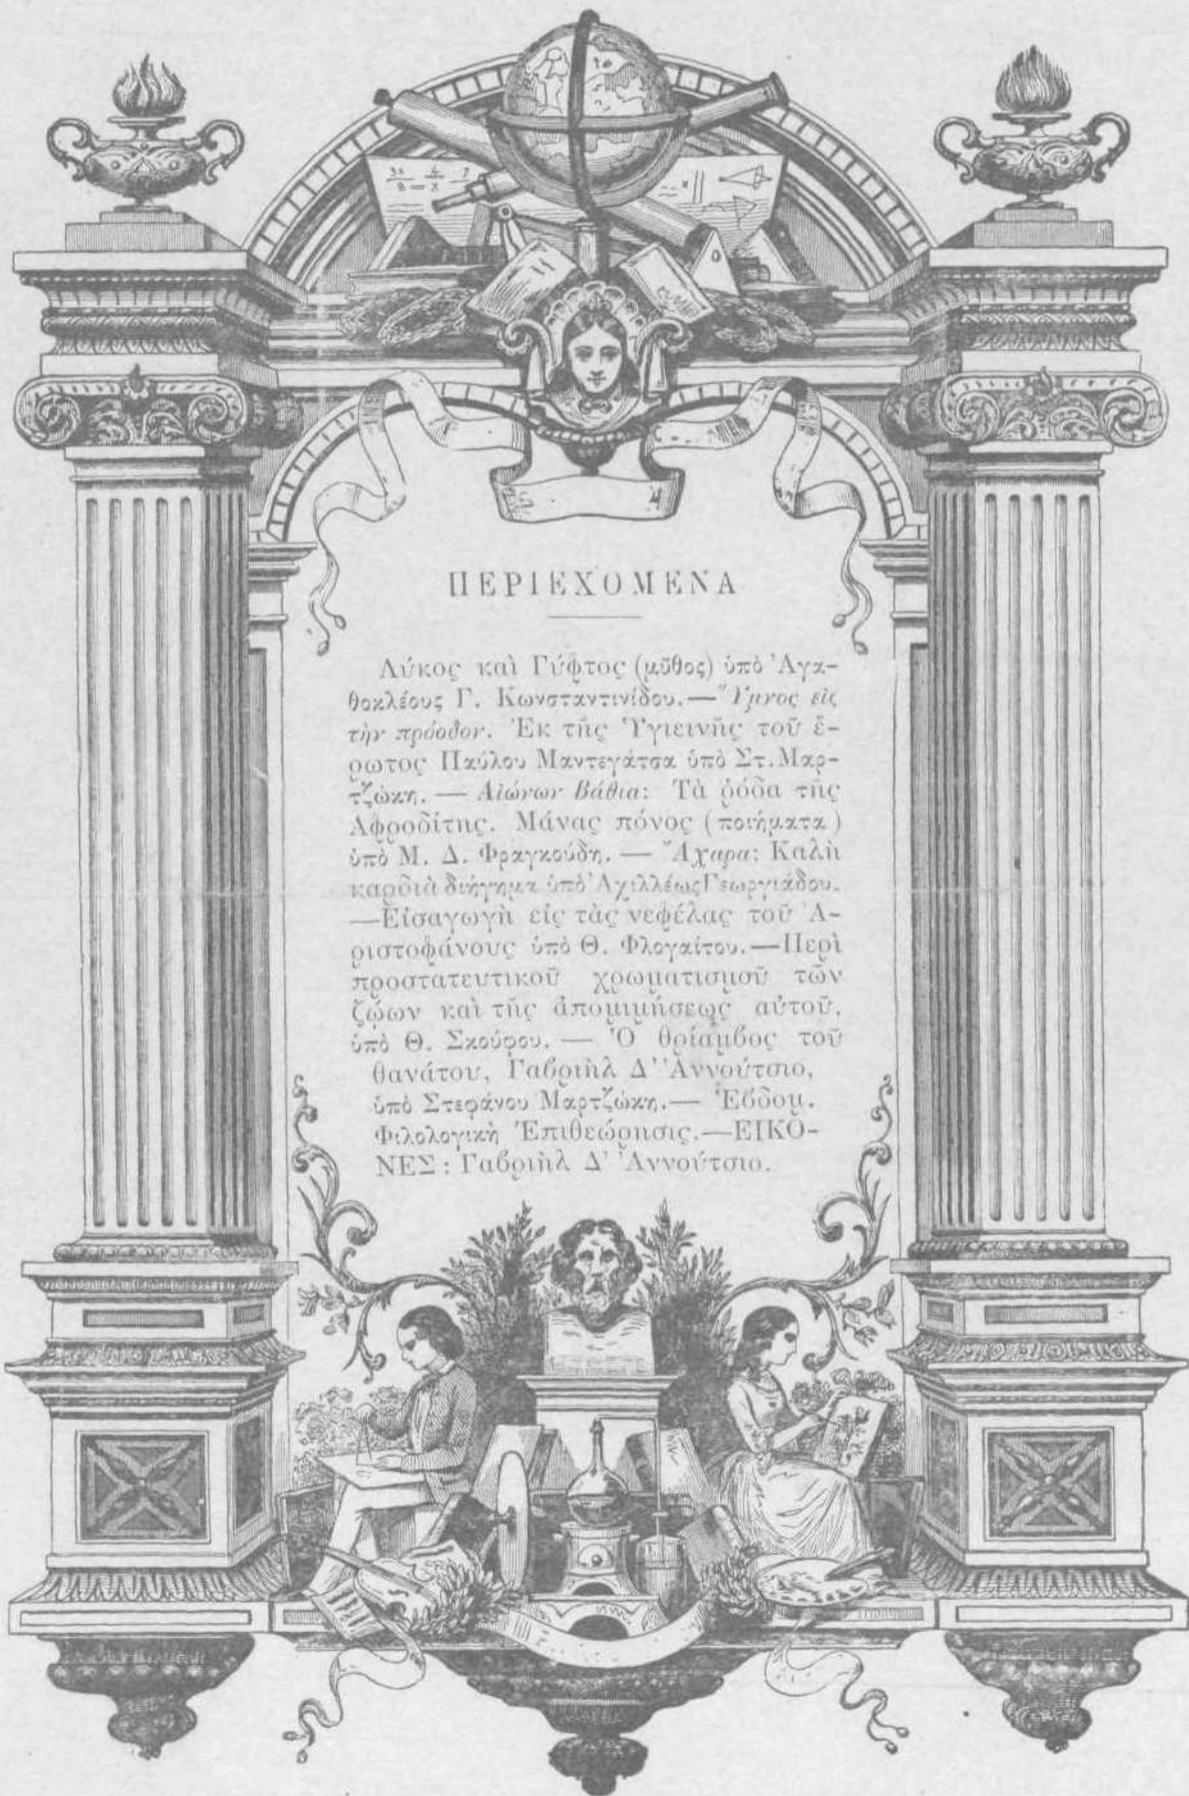 ΠΕΡΙΕΧΟΜΕΝΑ
Λύκος καὶ Γύφτος (μῦθος) ὑπὸ Ἀγα-
θοκλέους Γ. Κωνσταντινίδου.—Ὕμνος εἰς
τὴν πρόοδον. Ἐκ τῆς Ὑγιεινῆς τοῦ ἔ-
ρωτος Παύλου Μαντεγάτσα ὑπὸ Στ. Μαρ-
τζώκη. — Αἰώνων Βάθια: Τὰ ῥόδα τῆς
Ἀφροδίτης. Μάνας πόνος (ποιήματα)
ὑπὸ Μ. Δ. Φραγκούδη. — Ἄχαρα: Καλὴ
καρδιὰ διήγημα ὑπὸ Ἀχιλλέως Γεωργιάδου.
—Εἰσαγωγὴ εἰς τὰς νεφέλας τοῦ Ἀ-
ριστοφάνους ὑπὸ Θ. Φλογαΐτου.—Περὶ
προστατευτικοῦ χρωματισμοῦ τῶν
ζῴων καὶ τῆς ἀπομιμήσεως αὐτοῦ,
ὑπὸ Θ. Σκούφου. — Ὁ θρίαμβος τοῦ
θανάτου, Γαβριὴλ Δ' Ἀννούτσιο,
ὑπὸ Στεφάνου Μαρτζώκη.— Ἑβδομ.
Φιλολογικὴ Ἐπιθεώρησις.—ΕΙΚΟ-
ΝΕΣ: Γαβριὴλ Δ' Ἀννούτσιο.